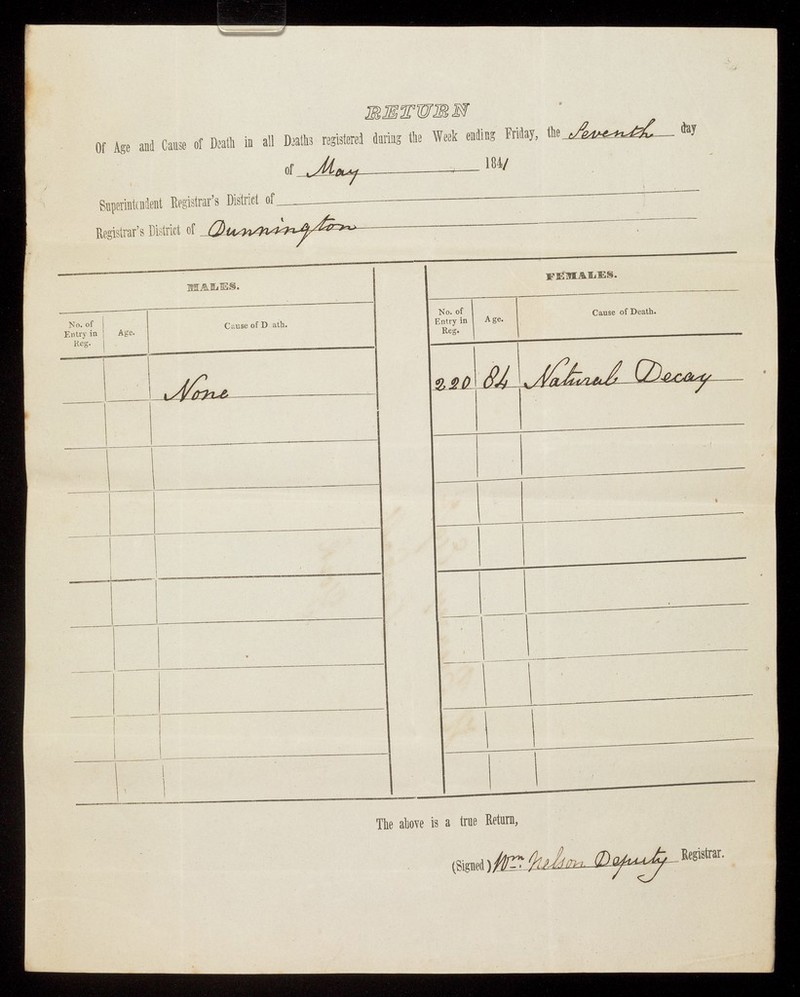 RETURN
Of Age and Cause of Death in all Deaths registered during the Week ending Friday, the Seventh day
of May 1841
Superintendent Registrar's District of
Registrar's District of Dunnington
MALES.
FEMALES.
No. of Entry in Reg.
Age.
Cause of D ath.
No. of Entry in Reg.
Age.
Cause of Death.
None
220 84 Natural Decay
The above is a true Return,
(Signed) Wm. Nelson Deputy Registrar.